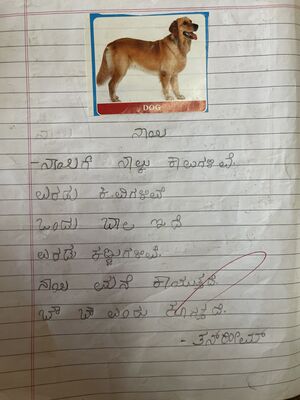 DOG
ನಾಯಿ
ನಾಯಿಗೆ ನಾಲ್ಕು ಕಾಲುಗಳಿವೆ.
ಎರಡು ಕಿವಿಗಳಿವೆ
ಒಂದು ಬಾಲ ಇದೆ
ಎರಡು ಕಣ್ಣುಗಳಿವೆ.
ನಾಯಿ ಮನೆ ಕಾಯುತ್ತದೆ.
ಬೌ ಬೌ ಎಂದು ಕೂಗುತ್ತದೆ.